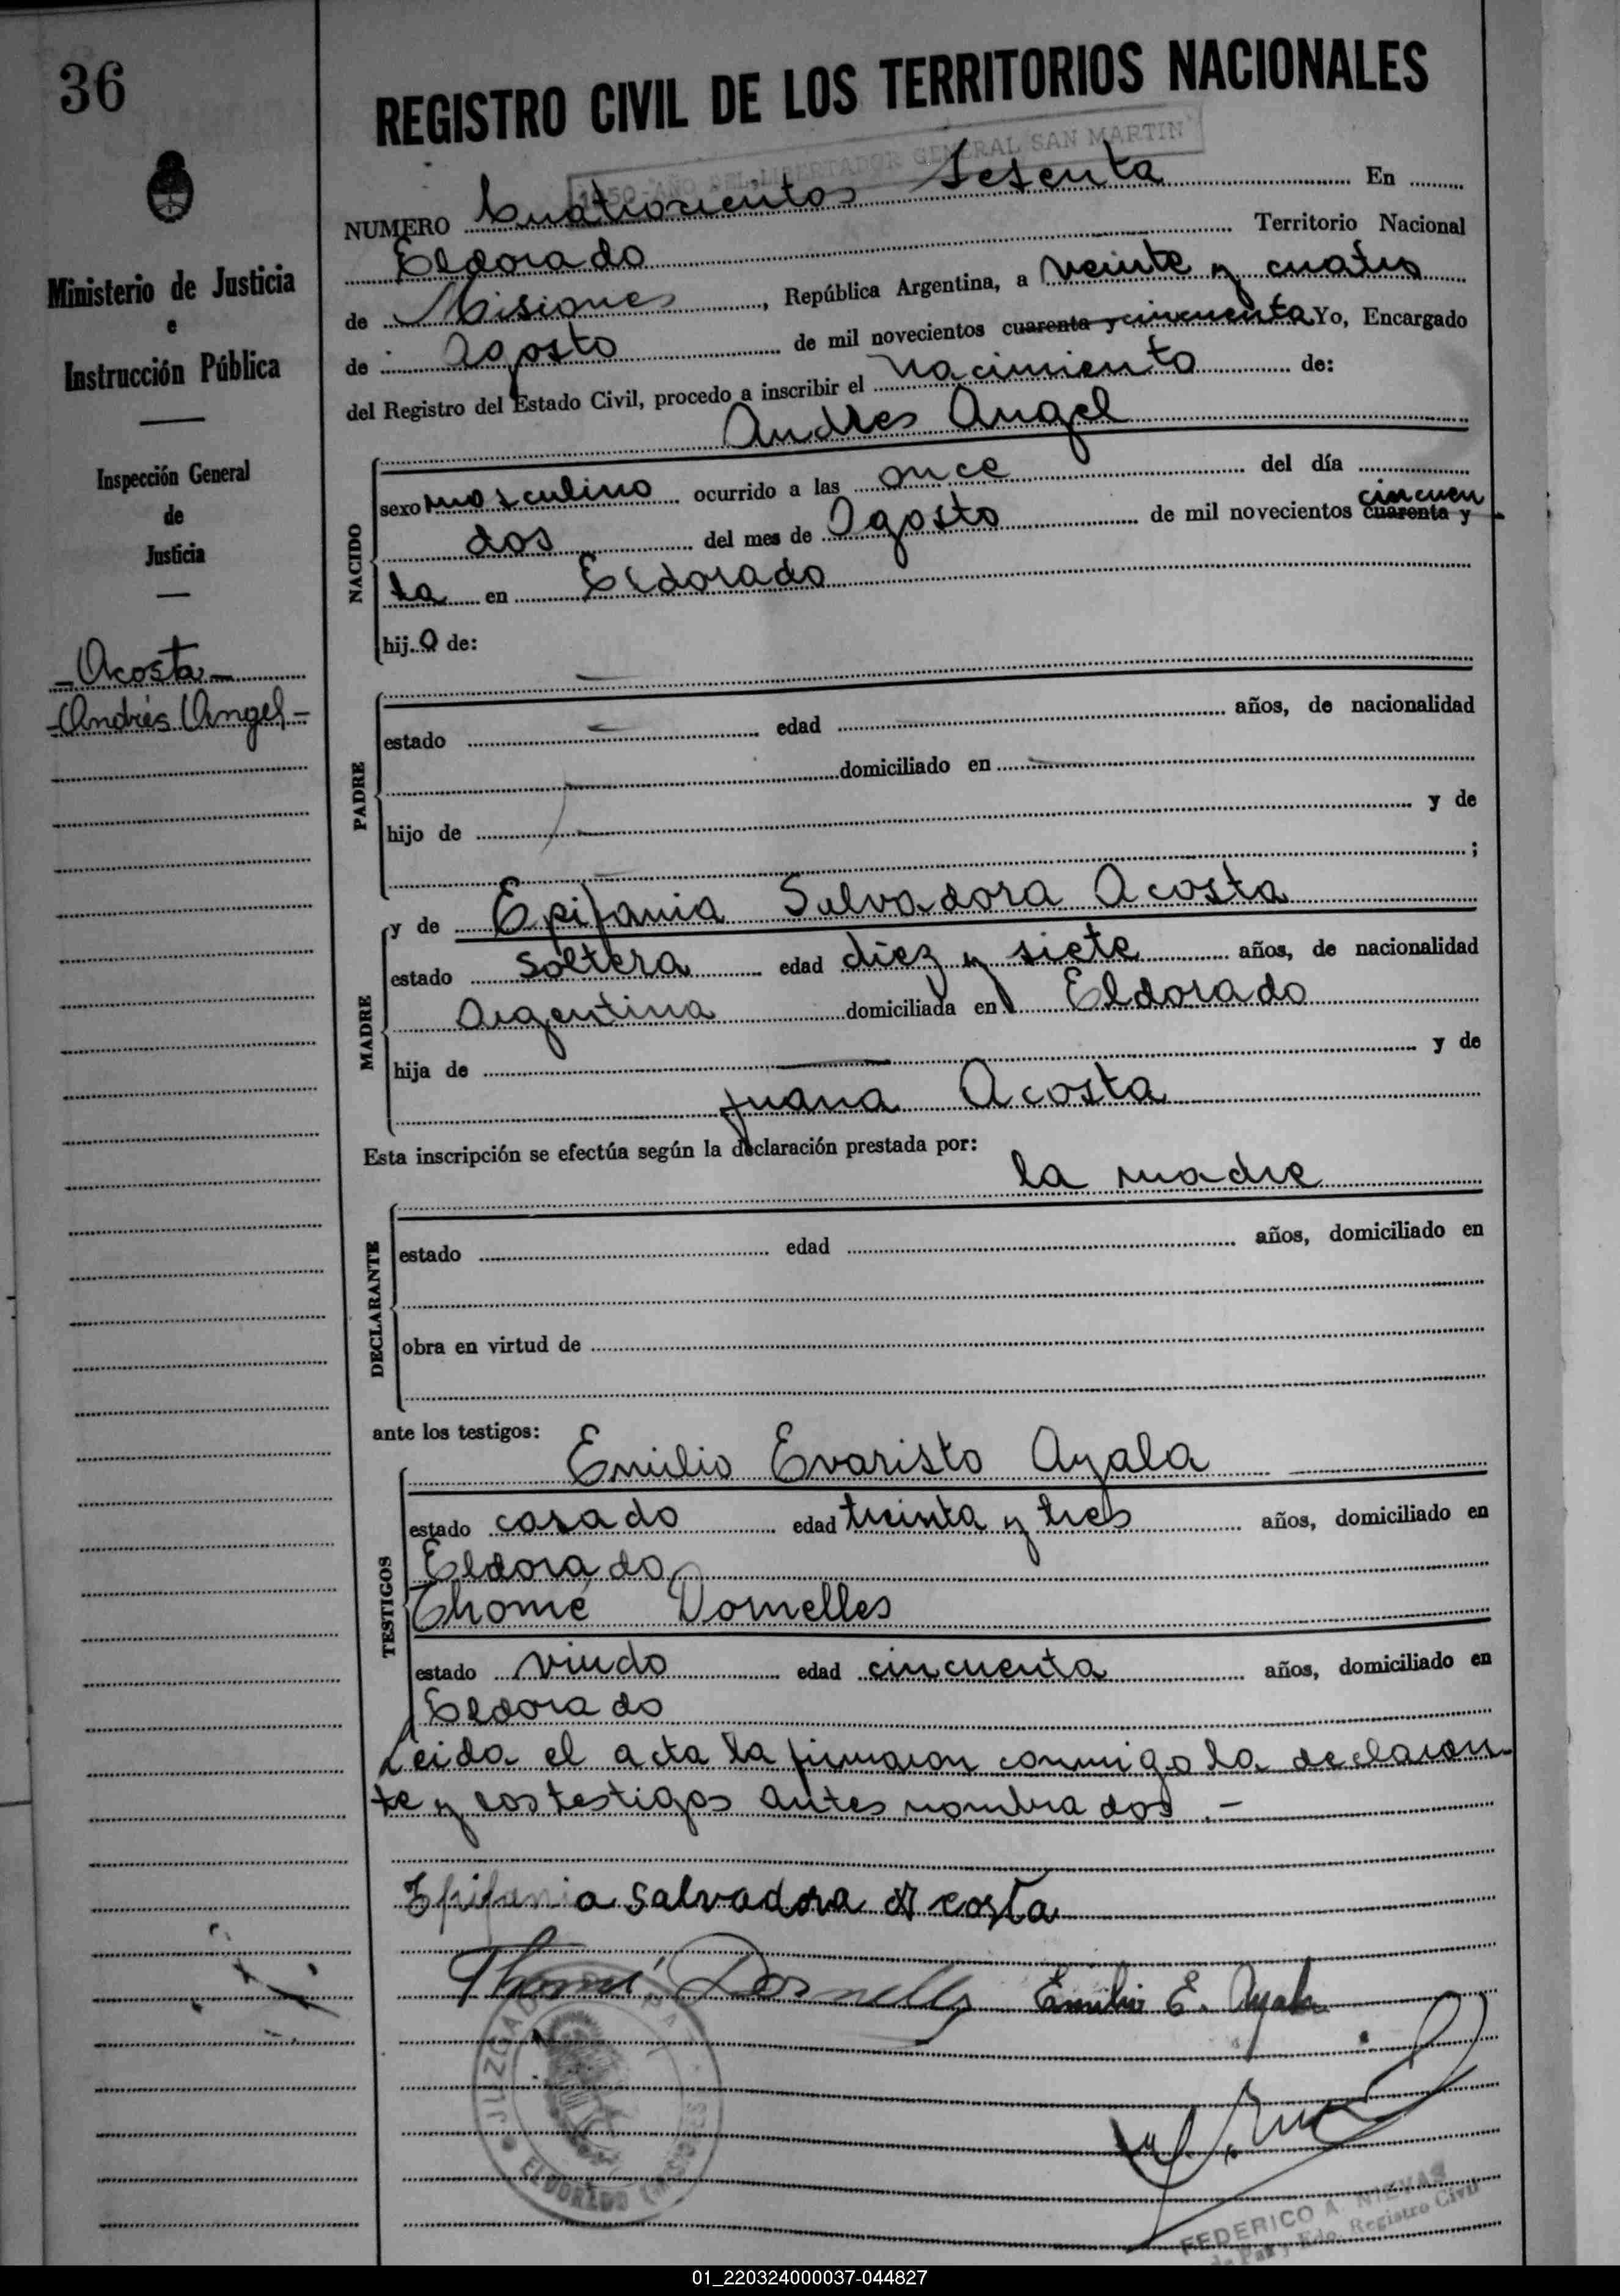 36
REGISTRO CIVIL DE LOS TERRITORIOS NACIONALES
1950-AÑO DEL LIBERTADOR GENERAL SAN MARTIN
NUMERO Cuatrocientos Sesenta En
Eldorado Territorio Nacional
de Misiones, República Argentina, a veinte y cuatro
de Agosto de mil novecientos cuarenta y cincuenta Yo, Encargado
del Registro del Estado Civil, procedo a inscribir el nacimiento de:
Andres Angel
NACIDO
sexo masculino ocurrido a las once del día
dos del mes de Agosto de mil novecientos cuarenta y cincuen
ta en Eldorado
hijo de:
Ministerio de Justicia
e
Instrucción Pública
Inspección General
de
Justicia
- Acosta -
- Andrés Angel -
PADRE
estado edad años, de nacionalidad
domiciliado en
hijo de y de
;
MADRE
y de Epifania Salvadora Acosta
estado soltera edad diez y siete años, de nacionalidad
Argentina domiciliada en Eldorado
hija de y de
Juana Acosta
Esta inscripción se efectúa según la declaración prestada por:
la madre
DECLARANTE
estado edad años, domiciliado en
obra en virtud de
ante los testigos:
TESTIGOS
Emilio Evaristo Ayala
estado casado edad treinta y tres años, domiciliado en
Eldorado
Thomé Dornelles
estado viudo edad cincuenta años, domiciliado en
Eldorado
Leida el acta la firmaron conmigo la declaran
te y los testigos antes nombrados.-
Epifania Salvadora Acosta
Thomé Dornelles Emilio E. Ayala
JUZGADO DE PAZ
ELDORADO (MISIONES)
FEDERICO A. NIEVAS
de Paz y Edo. Registro Civil
01_220324000037-044827